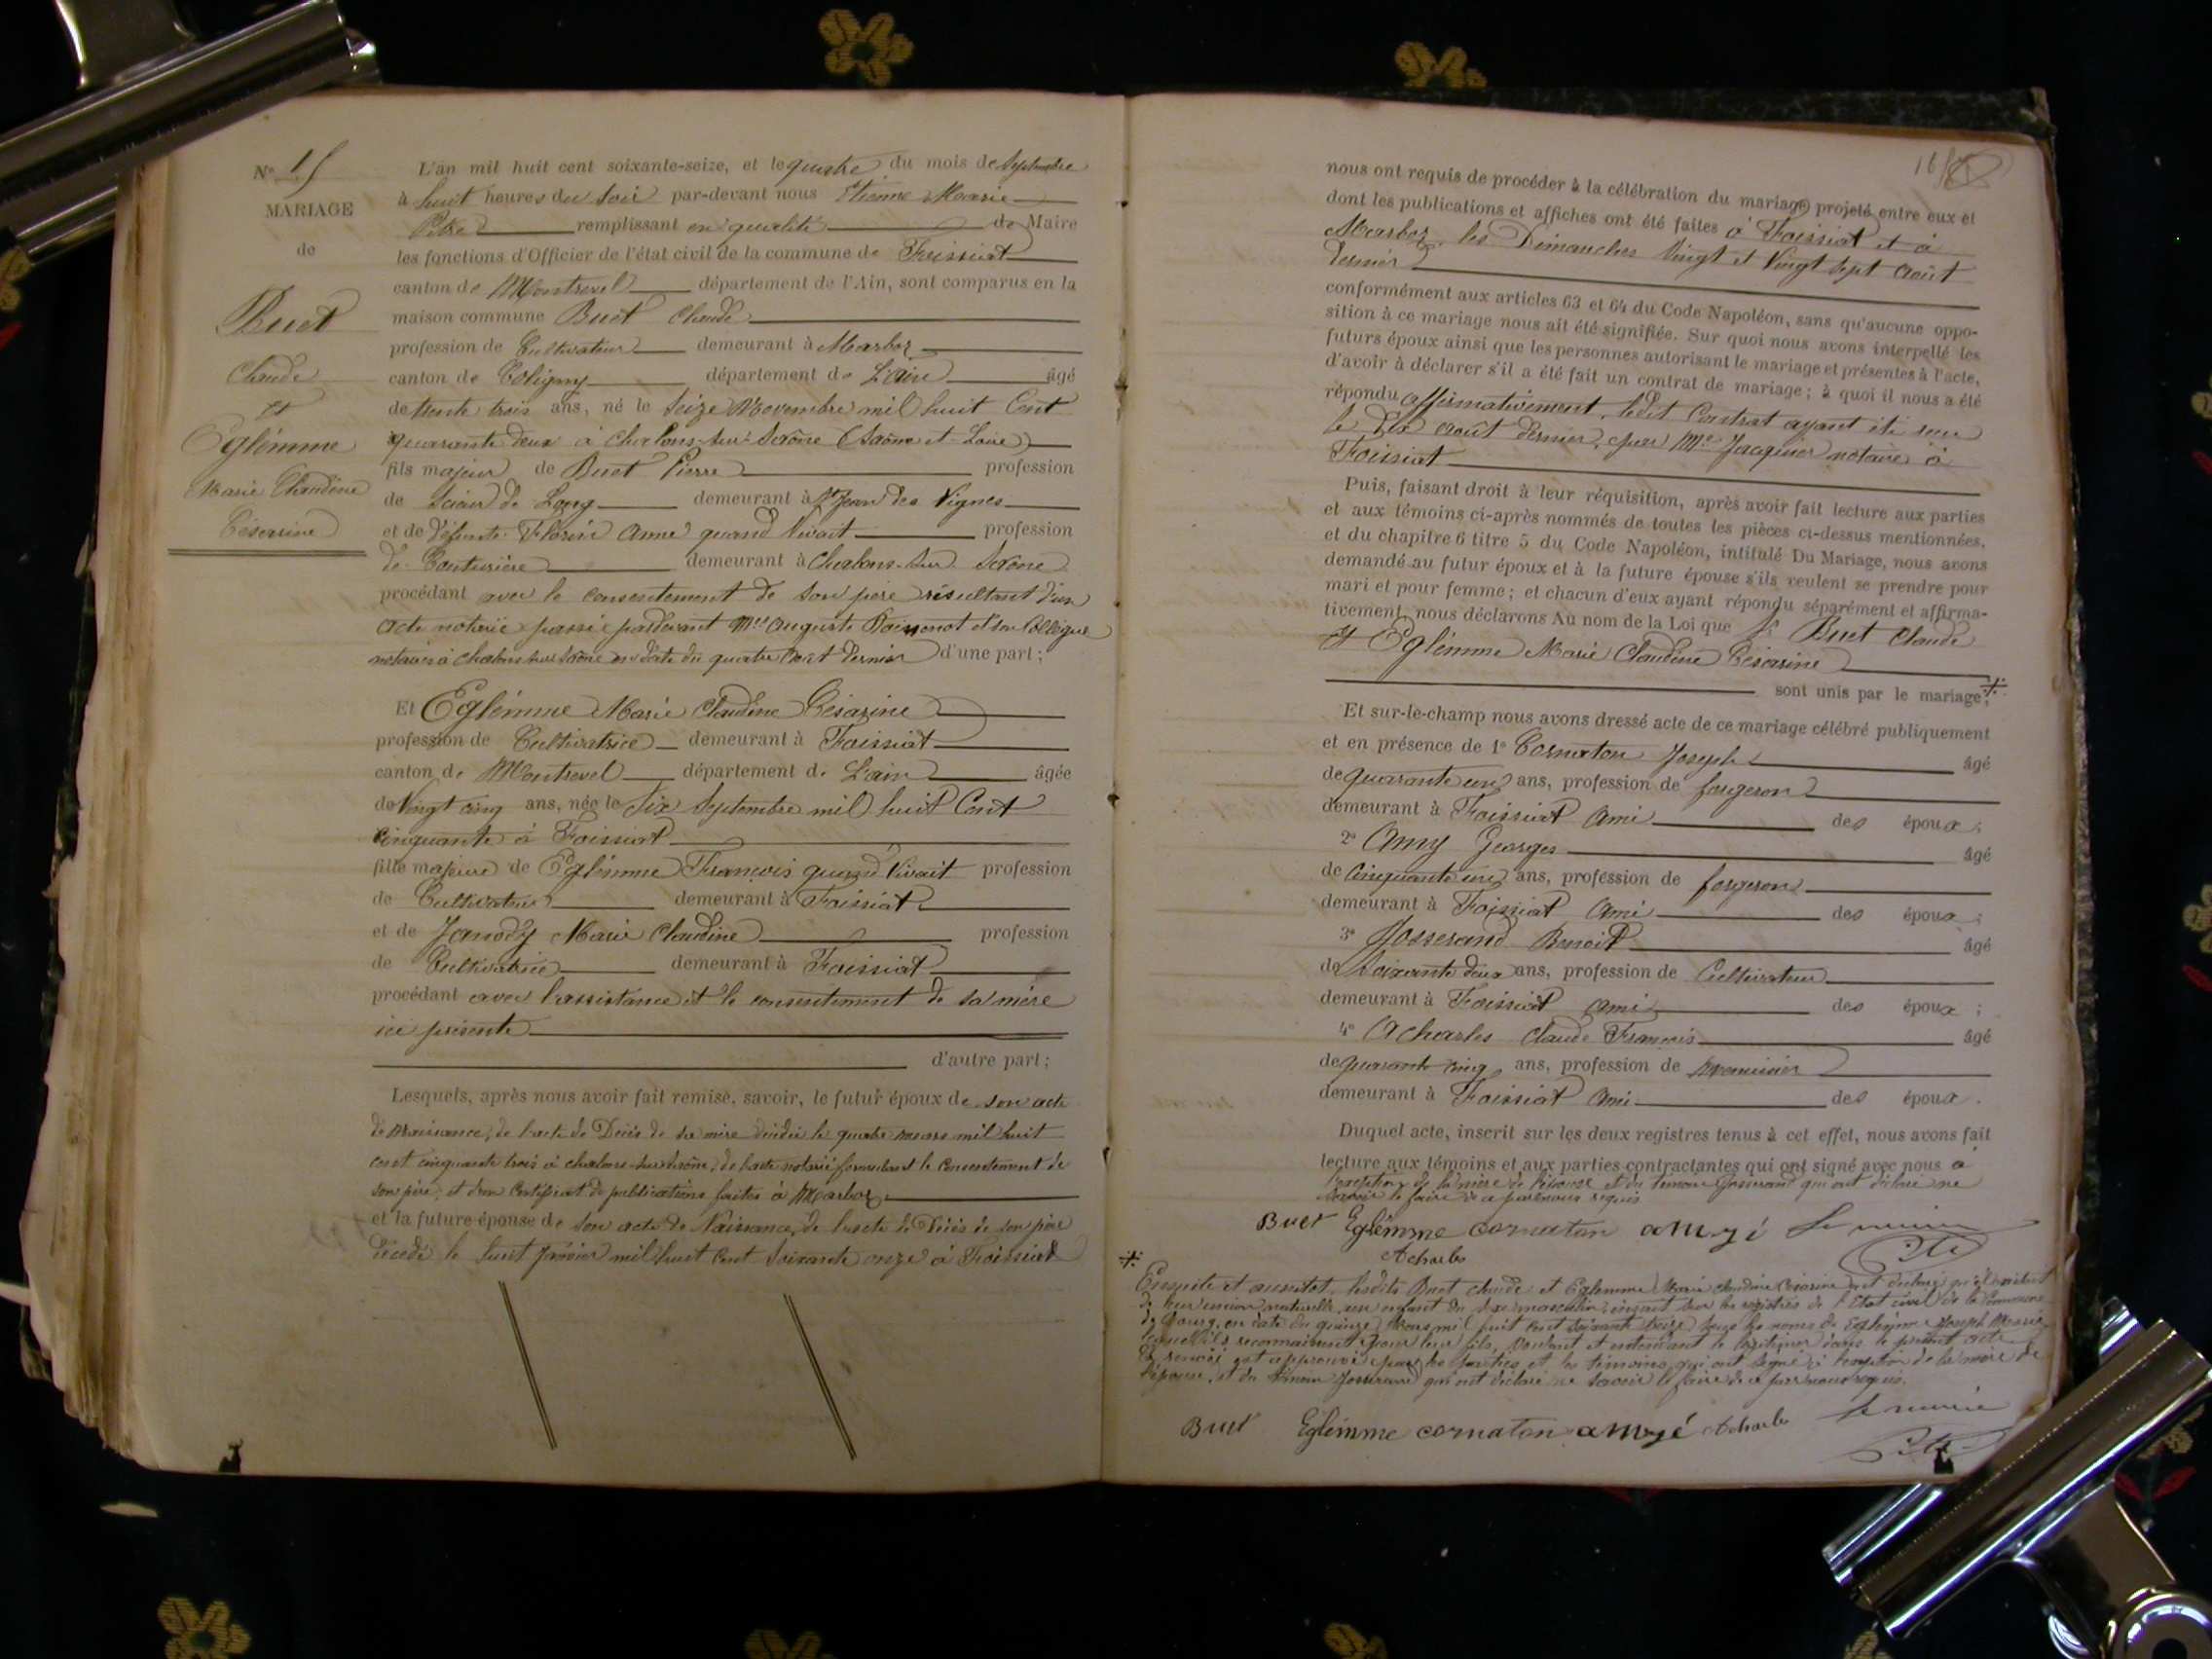 N° 15
MARIAGE
de
Buet
Claude
et
Eglémme
Marie Claudine
Césarine
L'an mil huit cent soixante-seize, et le quatre du mois de Septembre
à huit heures du Soir par-devant nous Etienne Marie
remplissant en qualité de Maire
les fonctions d'Officier de l'état civil de la commune de Foissiat
canton de Montrevel département de l'Ain, sont comparus en la
maison commune Buet Claude
profession de Cultivateur demeurant à Marboz
canton de Coligny département de L'Ain âgé
de trente trois ans, né le Seize Novembre mil huit Cent
quarante deux à Chalons-sur-Saône (Saône et Loire)
fils majeur de Buet Pierre profession
de Scieur de Long demeurant à St Jean des Vignes
et de défunte Florin Anne quand Vivait profession
de Couturière demeurant à Chalons-sur Saône
procédant avec le consentement de son père résultant d'un
acte notarié passé pardevant Mes Auguste et son Collègue
notaires à Chalons sur Saône en date du quatre Août dernier d'une part;
Et Eglémme Marie Claudine Césarine
profession de Cultivatrice demeurant à Foissiat
canton de Montrevel département de L'Ain âgée
de Vingt cinq ans, née le Six Septembre mil huit Cent
cinquante à Foissiat
fille majeure de Eglémme François quand Vivait profession
de Cultivateur demeurant à Foissiat
et de Janody Marie Claudine profession
de Cultivatrice demeurant à Foissiat
procédant avec l'assistance et le consentement de sa mère
ici présente
d'autre part;
Lesquels, après nous avoir fait remise, savoir, le futur époux de son acte
de Naissance, de l'acte de Décès de sa mère décédée le quatre mars mil huit
cent cinquante trois à Chalons-sur-Saône, de l'acte notarié formulant le Consentement de
son père, et d'un Certificat de publications faites à Marboz
et la future épouse de son acte de Naissance, de l'acte de Décès de son père
décédé le huit Janvier mil huit Cent Soixante onze à Foissiat
nous ont requis de procéder à la célébration du mariage projeté entre eux et
dont les publications et affiches ont été faites à Foissiat et à
Marboz les Dimanches Vingt et Vingt Sept Août
Dernier
conformément aux articles 63 et 64 du Code Napoléon, sans qu'aucune oppo-
sition à ce mariage nous ait été signifiée. Sur quoi nous avons interpellé les
futurs époux ainsi que les personnes autorisant le mariage et présentes à l'acte,
d'avoir à déclarer s'il a été fait un contrat de mariage; à quoi il nous a été
répondu affirmativement, ledit Contrat ayant été reçu
le Dix Août dernier, par Me Jacquier notaire à
Foissiat
Puis, faisant droit à leur réquisition, après avoir fait lecture aux parties
et aux témoins ci-après nommés de toutes les pièces ci-dessus mentionnées,
et du chapitre 6 titre 5 du Code Napoléon, intitulé Du Mariage, nous avons
demandé au futur époux et à la future épouse s'ils veulent se prendre pour
mari et pour femme; et chacun d'eux ayant répondu séparément et affirma-
tivement, nous déclarons Au nom de la Loi que Buet Claude
et Eglémme Marie Claudine Césarine
sont unis par le mariage;
Et sur-le-champ nous avons dressé acte de ce mariage célébré publiquement
et en présence de 1° Cornaton Joseph âgé
de quarante un ans, profession de forgeron
demeurant à Foissiat Ami des époux;
2° Amy Georges âgé
de Cinquante un ans, profession de forgeron
demeurant à Foissiat Ami des époux;
3° Josserand Benoit âgé
de Soixante deux ans, profession de Cultivateur
demeurant à Foissiat Ami des époux;
4° Acharles Claude François âgé
de quarante cinq ans, profession de Menuisier
demeurant à Foissiat Ami des époux.
Duquel acte, inscrit sur les deux registres tenus à cet effet, nous avons fait
lecture aux témoins et aux parties contractantes qui ont signé avec nous à
l'exception de la mère de l'épouse et du témoin Josserand qui ont déclaré ne
savoir le faire de ce par nous requis
Buet Eglémme cornaton amy Le maire
Acharles
Ensuite et aussitôt lesdits Buet Claude et Eglémme Marie Claudine Césarine ont déclaré qu'il existait
de leur union naturelle un enfant du Sexe masculin, inscrit sur les registres de l'Etat civil de la Commune
de Bourg, en date du quinze Mars mil huit Cent Soixante Seize, sous les noms de Eglémme Joseph Marie
lequel ils reconnaissent pour leur fils, voulant et entendant le légitimer dans le présent acte.
Ce renvoi est approuvé par les parties et les témoins qui ont signé, à l'exception de la mère de
l'épouse, et du témoin Josserand qui ont déclaré ne savoir le faire de ce par nous requis.
Buet Eglémme cornaton amy Acharles Le maire